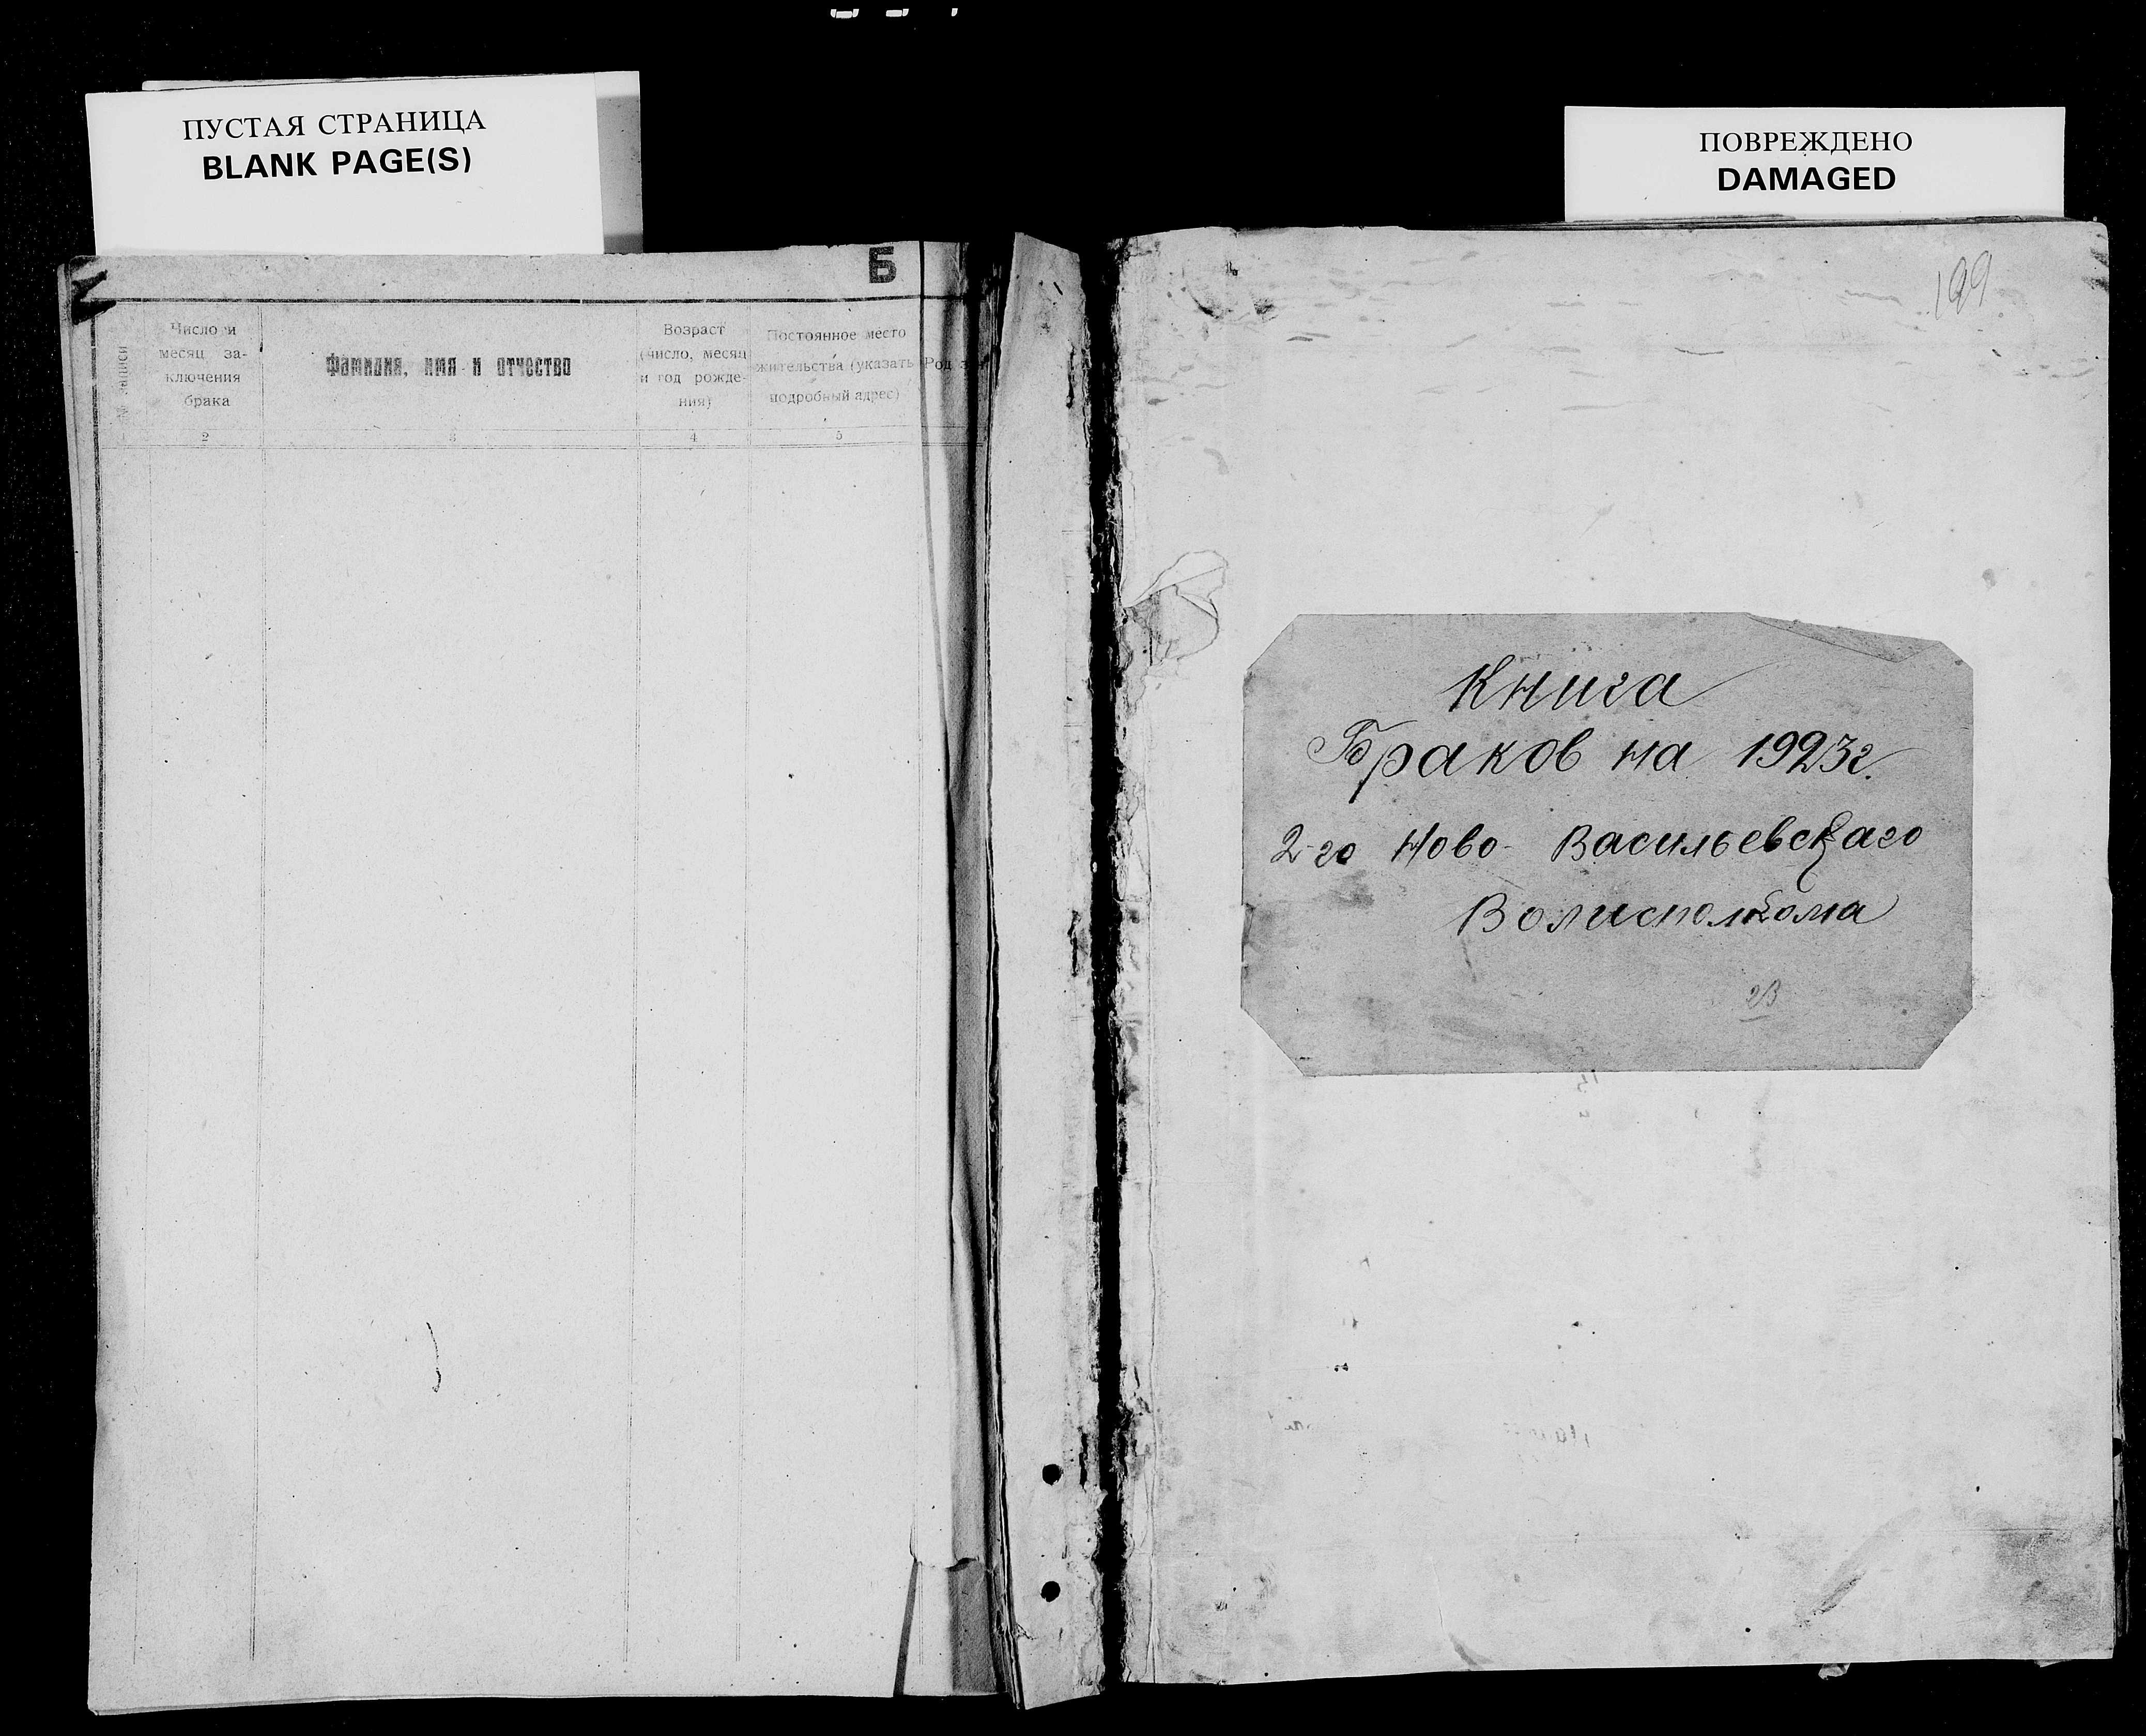 ПУСТАЯ СТРАНИЦА
BLANK PAGE(S)
Б
№ записи
Число и
месяц за-
ключения
брака
Фамилия, имя и отчество
Возраст
(число, месяц
и год рожде-
ния)
Постоянное место
жительства (указать
подробный адрес)
Род
2
3
4
5
ПОВРЕЖДЕНО
DAMAGED
199
Книга
Браков на 1923г.
2-го Ново-Васильевскаго
Волисполкома
23